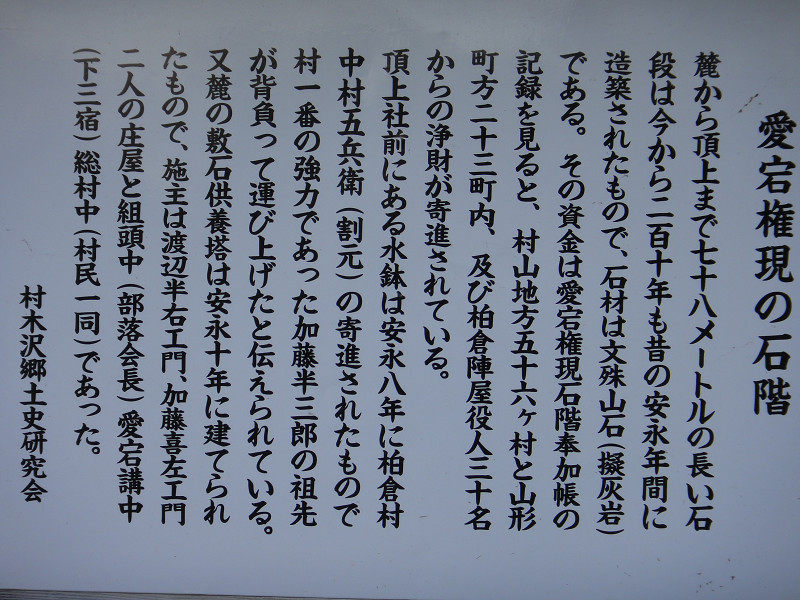 愛宕権現の石階
麓から頂上まで七十八メートルの長い石
段は今から二百十年も昔の安永年間に
造築されたもので、石材は文殊山石(擬灰岩)
である。その資金は愛宕権現石階奉加帳の
記録を見ると、村山地方五十六ヶ村と山形
町方二十三町内、及び柏倉陣屋役人三十名
からの浄財が寄進されている。
頂上社前にある水鉢は安永八年に柏倉村
中村五兵衛(割元)の寄進されたもので
村一番の強力であった加藤半三郎の祖先
が背負って運び上げたと伝えられている。
又麓の敷石供養塔は安永十年に建てられ
たもので、施主は渡辺半右エ門、加藤喜左エ門
二人の庄屋と組頭中(部落会長)愛宕講中
(下三宿)総村中(村民一同)であった。
村木沢郷土史研究会